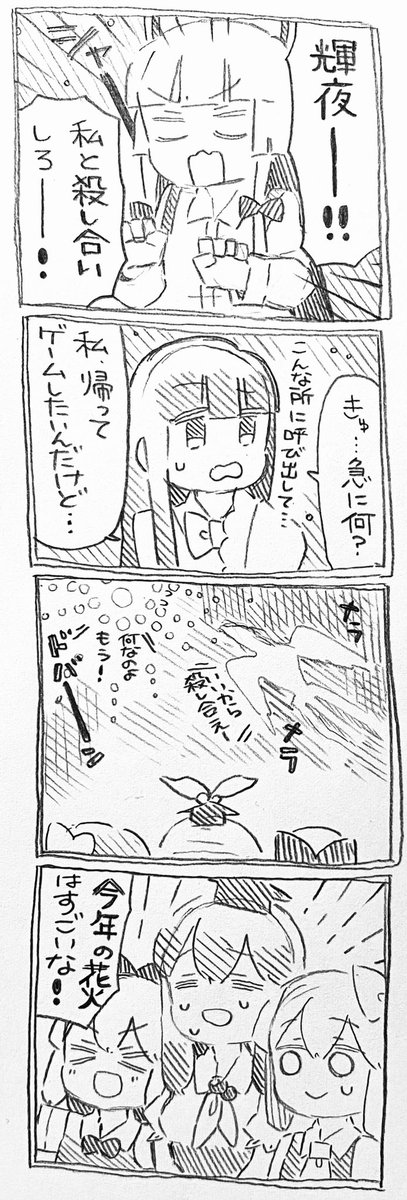 輝夜ー!!
ジャー
私と殺し合い
しろー!
きゅ…急に何?
こんな所に呼び出して…
私、帰って
ゲームしたいんだけど…
メラ
メラ
いいから
殺し合えー
何なのよ
もう!
ドバーン
今年の花火
はすごいな!